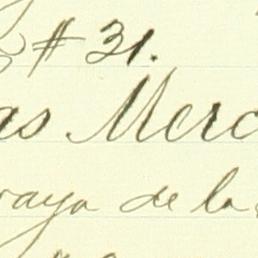 # 31.
as Merc
raya de la